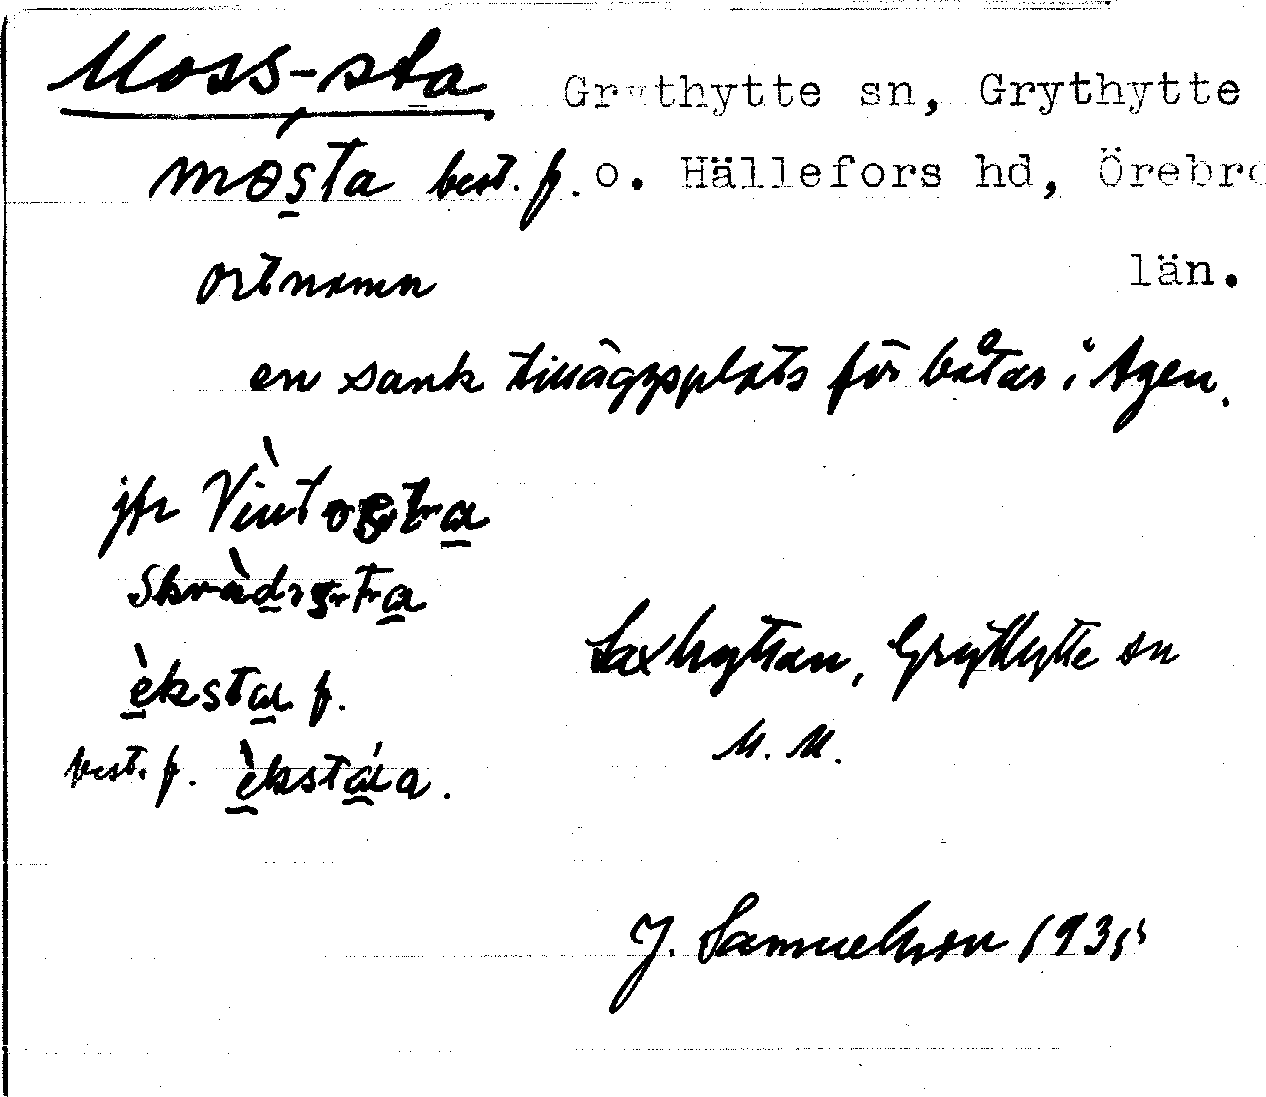 Moss-sta Grythytte sn, Grythytte
mósta best. f. o. Hällefors hd, Örebro
ortnamn län.
en sank tilläggsplats för båtar i Agen.
jfr
f.
best. f. èkstáa.
Saxhyttan, Grythytte sn
M. M.
J. Samuelson 1935